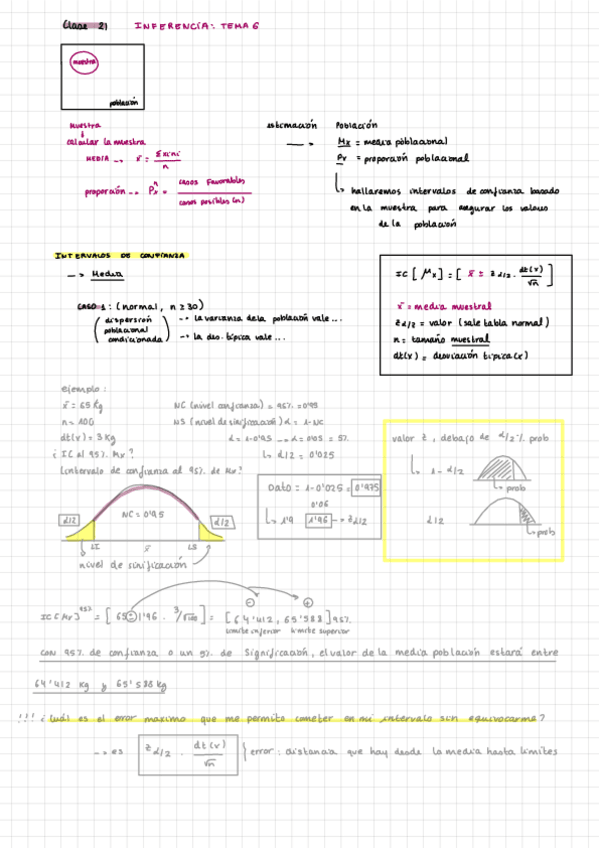 Clase 21 INFERENCIA: TEMA 6
muestra
población
Muestra
calcular la muestra
MEDIA --> x̄ = Σxi·ni / n
proporción --> P̂x = casos favorables / casos posibles (n)
estimación
Población
Mx = media poblacional
Px = proporción poblacional
hallaremos intervalos de confianza basado
en la muestra para asegurar los valores
de la población
INTERVALOS DE CONFIANZA
--> Media
CASO 1: (normal, n ≥ 30)
(dispersión poblacional condicionada)
--> la varianza de la población vale...
--> la des. típica vale...
IC [Mx] = [x̄ ± z α/2 · dt(x)/√n]
x̄ = media muestral
z α/2 = valor (sale tabla normal)
n = tamaño muestral
dt(x) = desviación típica(x)
ejemplo:
x̄ = 65 kg
n = 100
dt(x) = 3 kg
¿IC al 95% Mx?
NC (nivel confianza) = 95% = 0'95
NS (nivel de significación) α = 1-NC
α = 1-0'95 --> α = 0'05 = 5%
↳ α/2 = 0'025
¿intervalo de confianza al 95% de Mx?
α/2
NC = 0'95
α/2
LI x̄ LS
nivel de sinificación
Dato = 1-0'025 = 0'975
0'06
↳ 1'9 1'96 --> z α/2
valor z, debajo de α/2 % prob
↳ 1 - α/2
prob
α/2
prob
IC[Mx]95% = [65 ± 1'96 · 3/√100] = [64'412, 65'588] 95%
límite inferior límite superior
con 95% de confianza o un 5% de significación, el valor de la media población estará entre
64'412 kg y 65'588 kg
!!! ¿Cuál es el error maximo que me permito cometer en mi intervalo sin equivocarme?
--> es z α/2 · dt(x)/√n } error: distancia que hay desde la media hasta límites